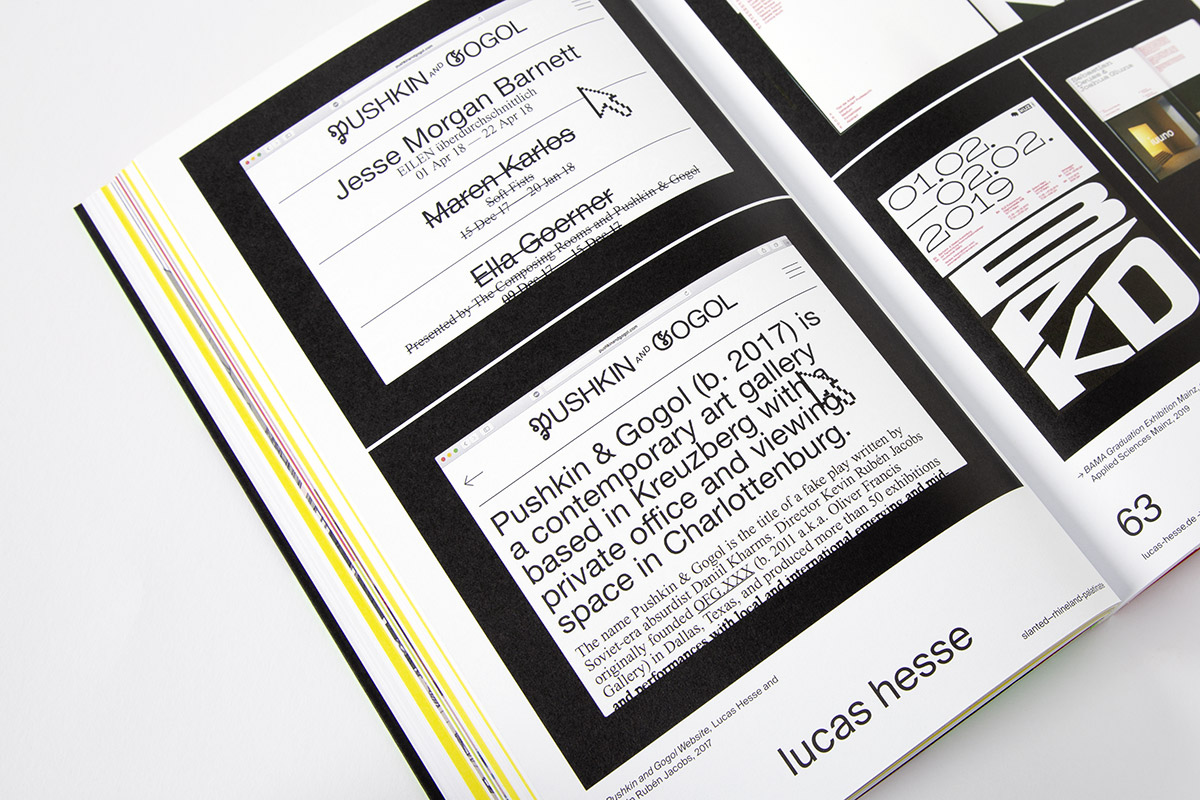 pushkinandgogol.com
PUSHKIN AND GOGOL
Jesse Morgan Barnett
EILEN überdurchschnittlich
01 Apr 18 — 22 Apr 18
Maren Karlos
Soft Fists
15 Dec 17 — 20 Jan 18
Ella Goerner
Presented by The Composing Rooms and Pushkin & Gogol
09 Dec 17 — 15 Dec 17
pushkinandgogol.com
PUSHKIN AND GOGOL
Pushkin & Gogol (b. 2017) is
a contemporary art gallery
based in Kreuzberg with a
private office and viewing
space in Charlottenburg.
The name Pushkin & Gogol is the title of a fake play written by
Soviet-era absurdist Daniil Kharms. Director Kevin Rubén Jacobs
originally founded OFG.XXX (b. 2011 a.k.a. Oliver Francis
Gallery) in Dallas, Texas, and produced more than 50 exhibitions
and performances with local and international emerging and mid-
Pushkin and Gogol Website, Lucas Hesse and
Rubén Jacobs, 2017
lucas hesse
slanted—rhineland-palatinate
01.02.
—02.02.
2019
BM
AKD
→ BAMA Graduation Exhibition Mainz,
Applied Sciences Mainz, 2019
63
lucas-hesse.de